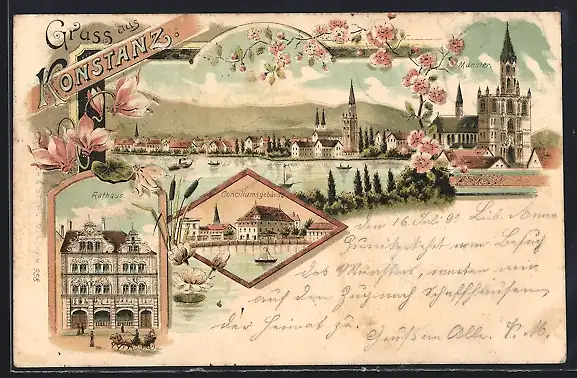 Gruss aus
KONSTANZ.
Münster.
Rathaus.
Conciliumsgebäude
den 16. Juli 97 Lieb. Anna
vom Besuch
des Münsters, warten wir
auf den Zug nach Schaffhausen
der Heimat zu. Gruß an Alle.
958